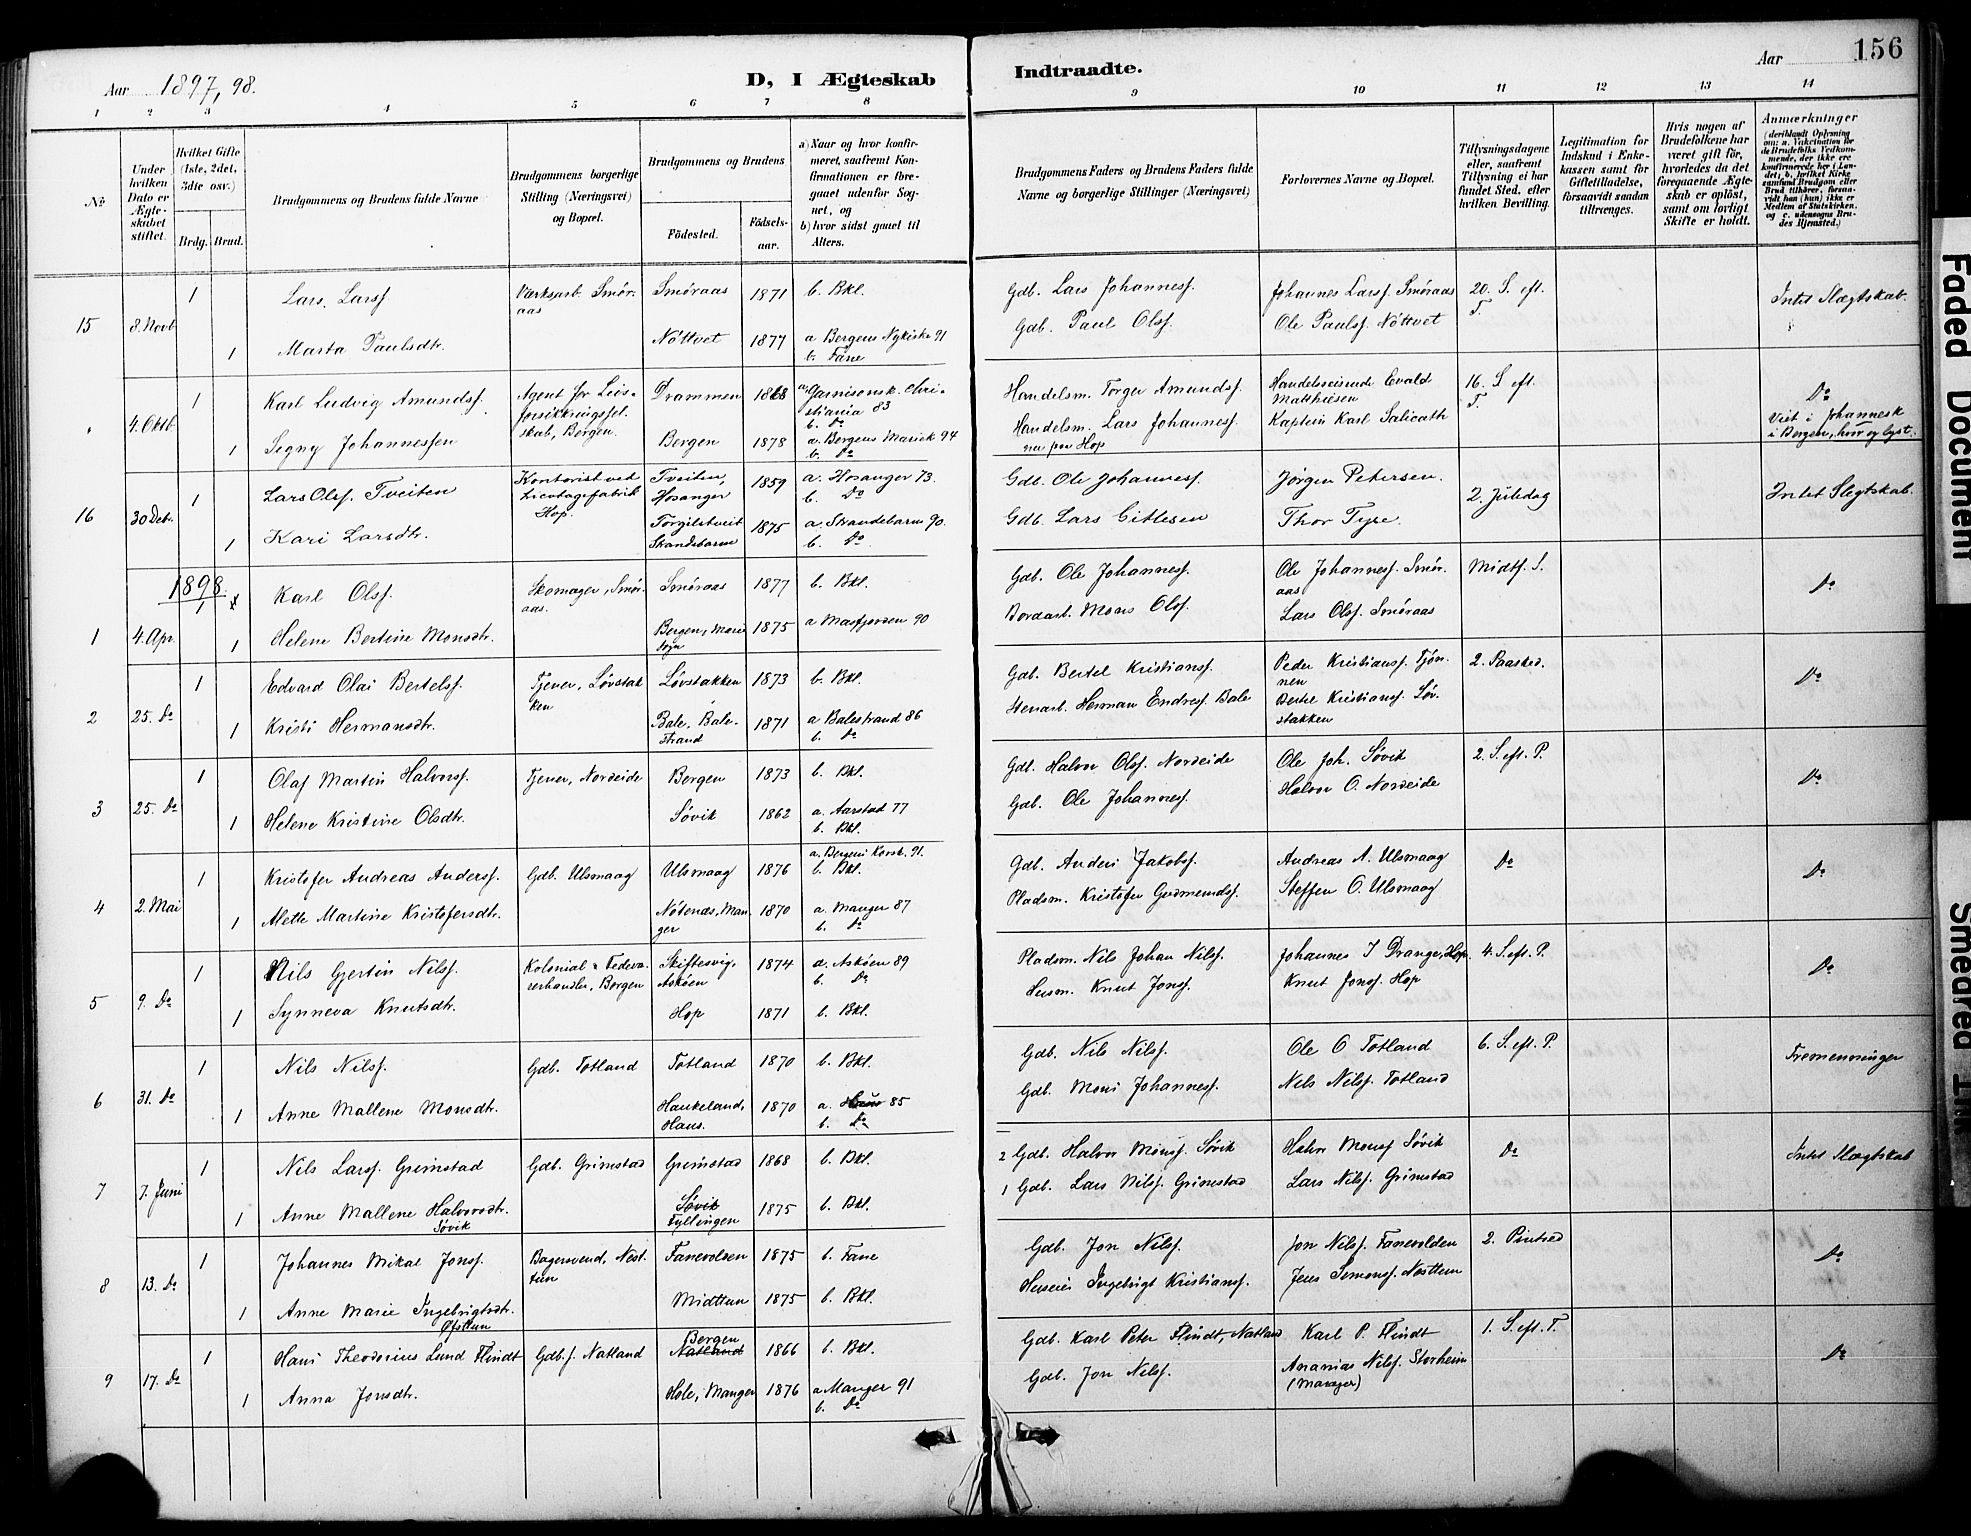 Aar 1897, 98.
D, I Ægteskab
Indtraadte.
Aar
156
1 2 3 4 5 6 7 8 9 10 11 12 13 14
No
Under hvilken Dato er Ægteskabet stiftet.
Hvilket Gifte (1ste, 2det, 3die osv.)
Brdg. Brud.
Brudgommens og Brudens fulde Navne
Brudgommens borgerlige Stilling (Næringsvei) og Bopæl.
Brudgommens og Brudens
Födested.
Födselsaar.
a) Naar og hvor konfirmeret, saafremt Konfirmationen er foregaaet udenfor Sognet, og
b) hvor sidst gaaet til Alters.
Brudgommens Faders og Brudens Faders fulde Navne og borgerlige Stillinger (Næringsvei)
Forlovernes Navne og Bopæl.
Tillysningsdagene eller, saafremt Tillysning ei har fundet Sted, efter hvilken Bevilling.
Legitimation for Indskud i Enkekassen samt for Giftetilladelse, forsaavidt saadan tiltrænges.
Hvis nogen af Brudefolkene har været gift för, hvorledes da det foregaaende Ægteskab er oplöst, samt om lovligt Skifte er holdt.
Anmærkninger
(deriblandt Oplysning om: a. Vaksination for de Brudefolks Vedkommende, der ikke ere konfirmerede her i Landet; b. hvilket Kirkesamfund Brudgom eller Brud tilhörer, forsaavidt han (hun) ikke er Medlem af Statskirken, og c. udensogns Brudes Hjemsted.)
15 8. Novb 1 Lars Larsf. Værksarb. Smöraas Smöraas 1871 b. Bkl. Gdb. Lars Johannesf. Johannes Larsf. Smöraas 20. S. eft. T. Intet Slægtskab.
1 Marta Paulsdtr. Nöttvet 1877 a Bergens Nykirke 91 b. Fane Gdb. Paul Olsf. Ole Paulsf. Nöttvet
" 4. Oktb. 1 Karl Ludvig Amundsf. Agent for Livsforsikkringssel.skab, Bergen. Drammen 1868 a. Garnisonsk. Christiania 83 b. Do Handelsm. Torger Amundsf. Handelsreisende Evald Matthiesen 16. S. eft. T. Do
1 Signy Johannessen Bergen 1878 a. Bergens Mariek 94 b. Do Handelsm. Lars Johannesf. nu paa Hop Kaptein Karl Salicath Viet i Johannesk i Bergen, hvor og lyst.
16 30 Decb. 1 Lars Olsf. Tveiten Kontorist ved Hop. Tveiten, Hosanger 1859 a. Hosanger 73. b. Do Gdb. Ole Johannesf. Jörgen Petersen. 2. Juledag Intet Slegtskab.
1 Kari Larsdtr. Torgilstveit Strandebarm 1875 a. Strandebarm 90. b. Do Gdb. Lars Thor
1898.
1 4. Apr. 1 Karl Olsf. Skomager, Smöraas. Smöraas 1877 b. Bkl. Gdb. Ole Johannesf. Ole Johannesf. Smöraas Midtf. S. Do
1 Helene Bertine Monsdtr. Bergen, 1875 a Masfjorden 90 Mons Olsf. Lars Olsf. Smöraas
2 25. Do 1 Edvard Olai Bertelsf. Tjener, Lövstakken Lövstakken 1873 b. Bkl. Gdb. Bertel Kristiansf. Peder Kristiansf. Tjönnen 2. Paasked. Do
1 Kristi Hermansdtr. Bale, Balestrand 1871 a Balestrand 86 b. Do Herman Endresf. Bale Bertel Kristiansf. Lövstakken
3 25. Do 1 Olaf Martin Halvorsf. Tjener, Nordeide Bergen 1873 b. Bkl. Gdb. Halvor Olsf. Nordeide Ole Joh. Sövik 2. S. eft. P. Do
1 Helene Kristine Olsdtr. Sövik 1862 a. Aarstad 77 b. Bkl. Gdb. Ole Johannesf. Halvor O. Nordeide
4 2. Mai 1 Kristofer Andreas Andersf. Gdb. Ulsmaag Ulsmaag 1876 a. Bergens Korsk. 91. b. Bkl. Gdb. Anders Jakobsf. Andreas A. Ulsmaag Do Do
1 Alette Martine Kristofersdtr. Nötenæs, Manger 1870 a. Manger 87 b. Do Pladsm. Kristofer Gudmundsf. Steffen O. Ulsmaag
5 9. Do 1 Nils Gjertin Nilsf. Kolonial & Fedevarerhandler, Bergen Skiftesvig, Asköen 1874 a. Asköen 89 b. Do Pladsm. Nils Johan Nilsf. Johannes J Drange, Hop 4. S. eft. P. Do
1 Synneva Knutsdtr. Hop 1871 b. Bkl. Husm. Knut Jonsf. Knut Jonsf. Hop
6 31. Do 1 Nils Nilsf. Gdb. Totland Totland 1870 b. Bkl. Gdb. Nils Nilsf. Ole O Totland 6. S. eft. P. Fremenninger
1 Anne Mallene Monsdtr. Haukeland, Haus. 1870 a. Haus 85 b. Do Gdb. Mons Johannesf. Nils Nilsf. Totland
7 7. Juni 1 Nils Larsf. Grimstad Gdb. Grimstad Grimstad 1868 b. Bkl. 2 Gdb. Halvor Monsf. Sövik Halvor Monsf Sövik Do Intet Slægtskab
1 Anne Mallene Halvorsdtr. Sövik Sövik Fyllingen 1875 b. Bkl. 1 Gdb. Lars Nilsf. Grimstad Lars Nilsf. Grimstad
8 13. Do 1 Johannes Mikal Jonsf. Bagersvend, Nesttun Fanevolden 1875 b. Fane Gdb. Jon Nilsf. Jon Nilsf. Fanevolden 2. Pintsed Do
1 Anne Marie Ingebrigtsdtr. Öfsttun Midttun 1875 b. Bkl. Huseier Ingebrigt Kristiansf. Jens Simonsf. Nesttun
9 17. Do 1 Hans Theodorius Lund Flindt Gdb.f. Natland Bergen Natland 1866 b. Bkl. Gdb. Karl Peter Flindt, Natland Karl P. Flindt 1. S. eft. T. Do
1 Anna Jonsdtr. Hole, Manger 1876 a Manger 91 b. Do Gdb. Jon Nilsf. Ananias Nilsf. Storheim (Manger)
Faded Document
Smeared Ink